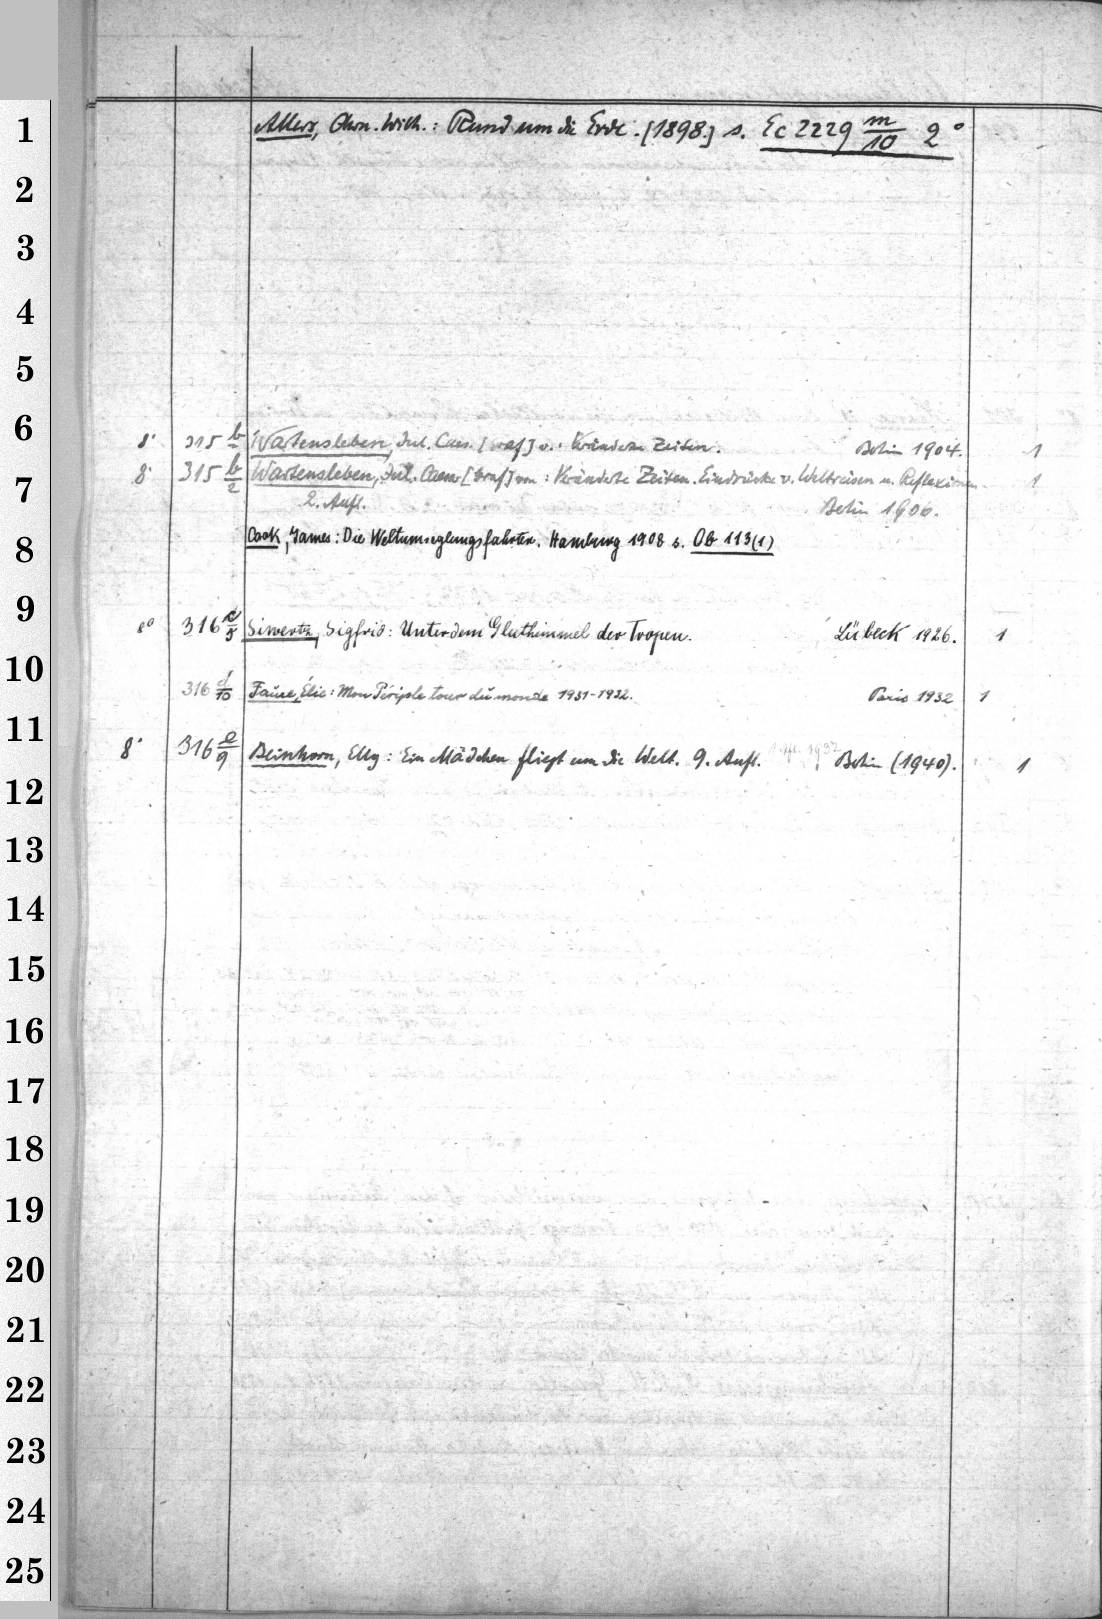 1 Allers, Chn. Wilh.: Rund um die Erde. [1898.] s. Ec 2229 m/10 2°
2
3
4
5
6 8° 315 b/ Wartensleben, Jul. Caes. [Graf] v.: Veränderte Zeiten. Berlin 1904. 1
7 8° 315 b/2 Wartensleben, Jul. Caesar [Graf] von: Veränderte Zeiten. Eindrücke v. Weltreisen u. Reflexionen. 1
2. Aufl. Berlin 1906.
8 Cook, James: Die Weltumseglungsfahrten. Hamburg 1908 s. Ob 113(1)
9 8° 316 /5 Siwertz, Sigfrid: Unter dem Gluthimmel der Tropen. Lübeck 1926. 1
10 316 d/10 Faure, Élie: Mon Périple tour du monde 1931-1932. Paris 1932 1
11 8° 316 e/9 Beinhorn, Elly: Ein Mädchen fliegt um die Welt. 9. Aufl. 1932 Berlin (1940). 1
12
13
14
15
16
17
18
19
20
21
22
23
24
25